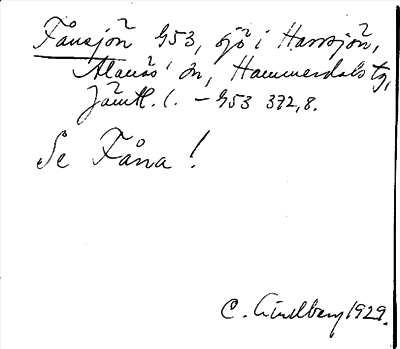 Fånsjön 953, sjö i Harrsjön,
Alanäs' sn, Hammerdals tg,
Jämtl. l. – 953 372,8.
Se Fåna!
C. Lindberg 1929.